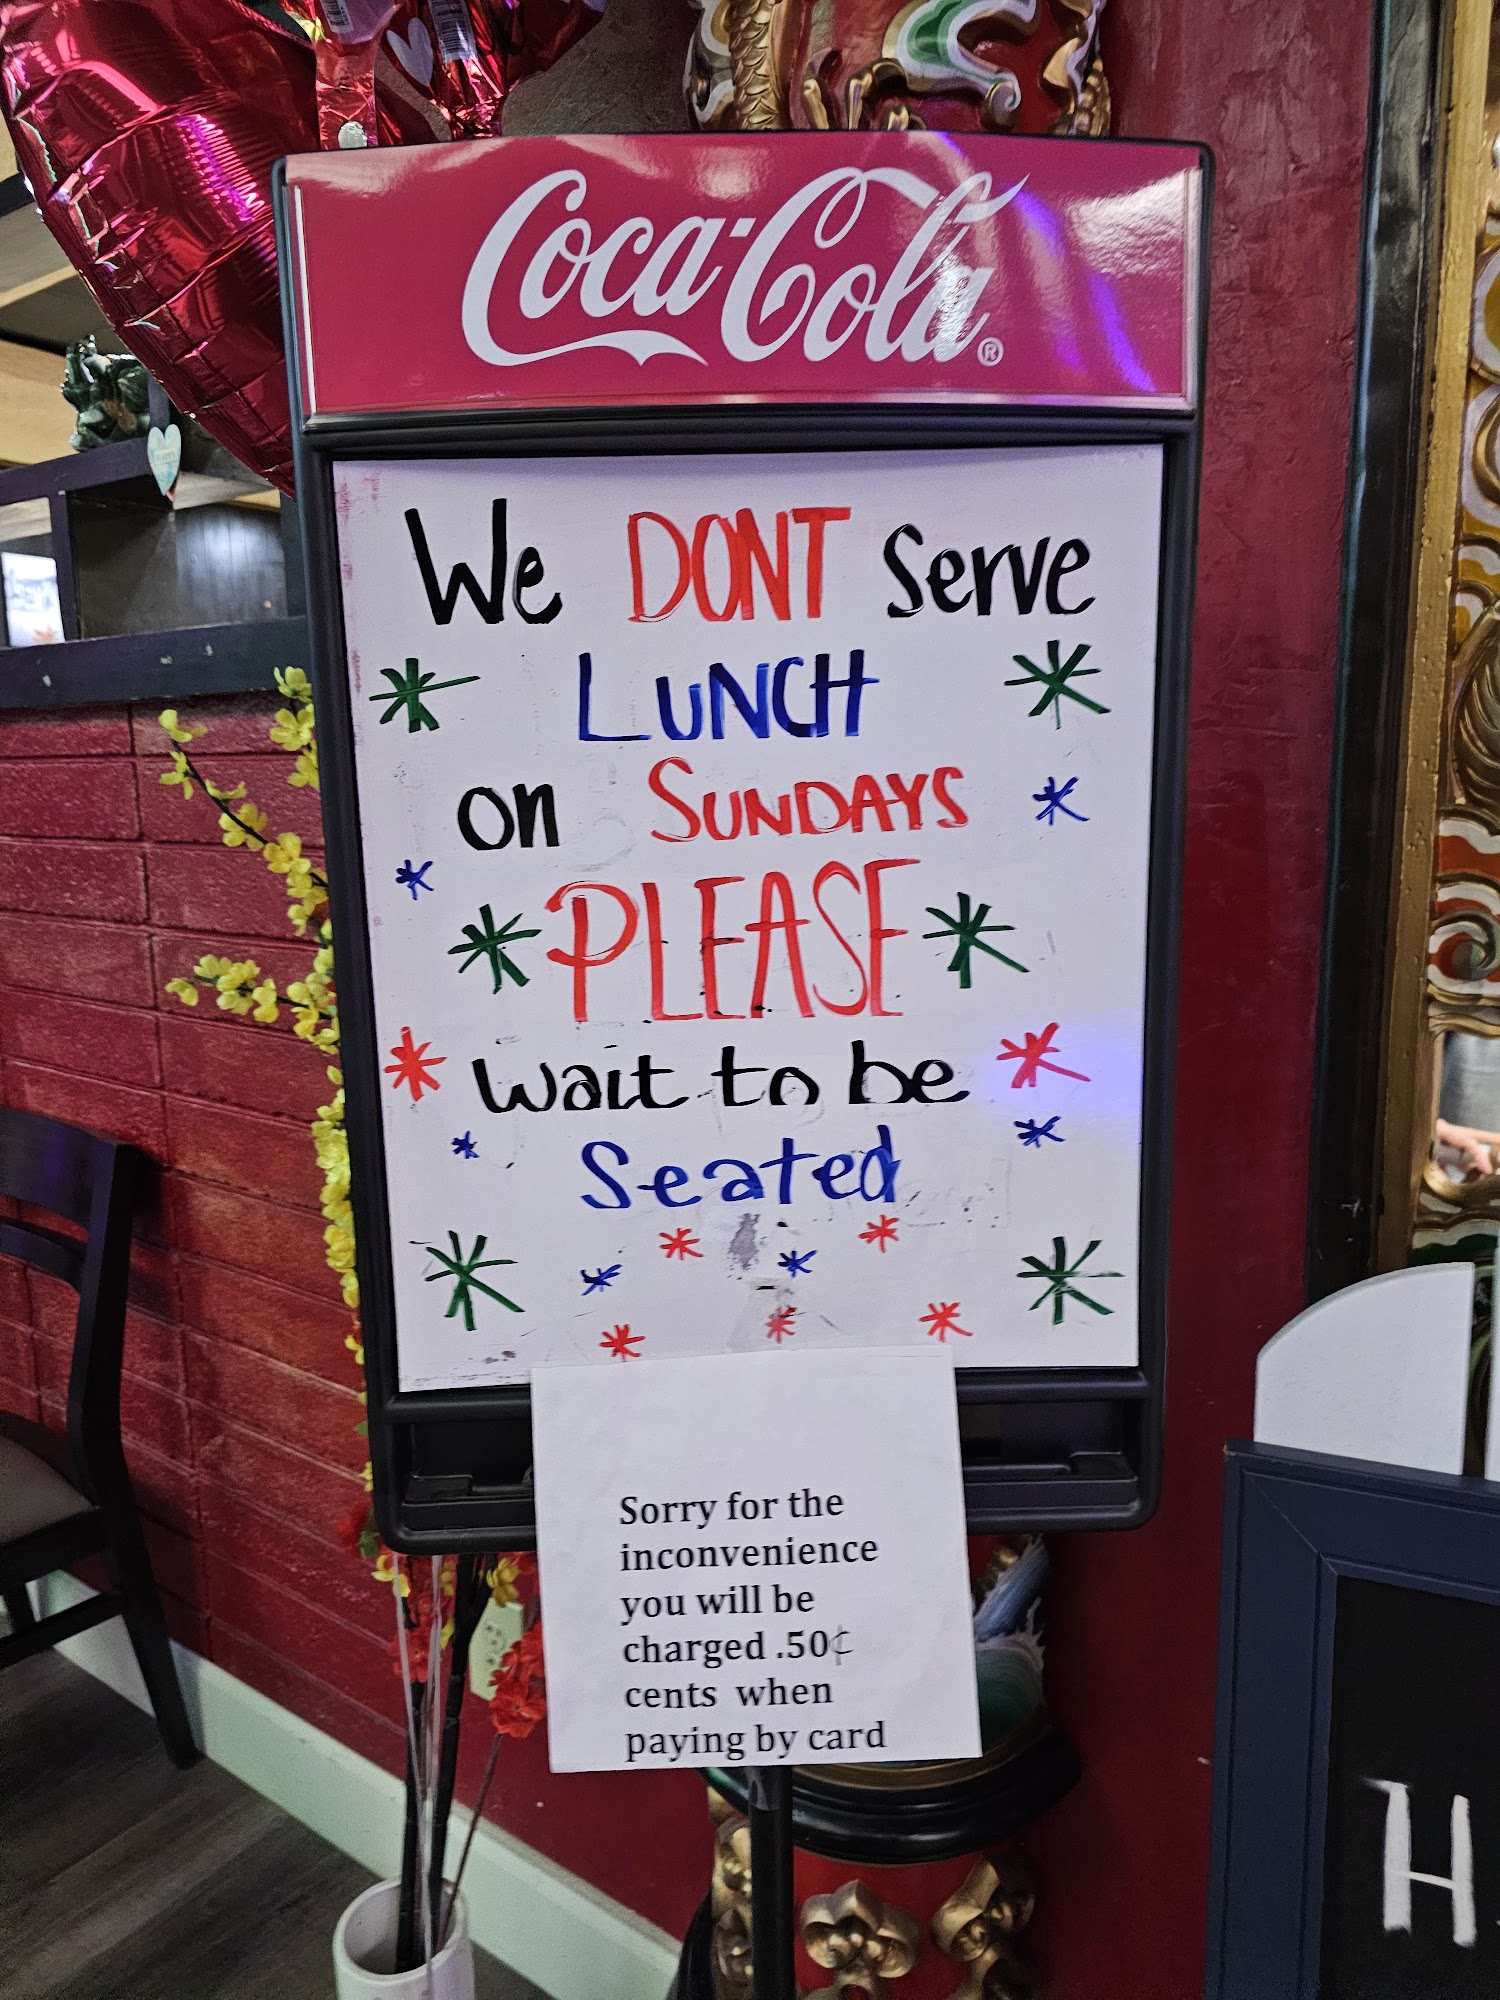 Coca-Cola®
We DONT Serve
LUNCH
on SUNDAYS
PLEASE
wait to be
Seated
Sorry for the
inconvenience
you will be
charged .50¢
cents when
paying by card
H